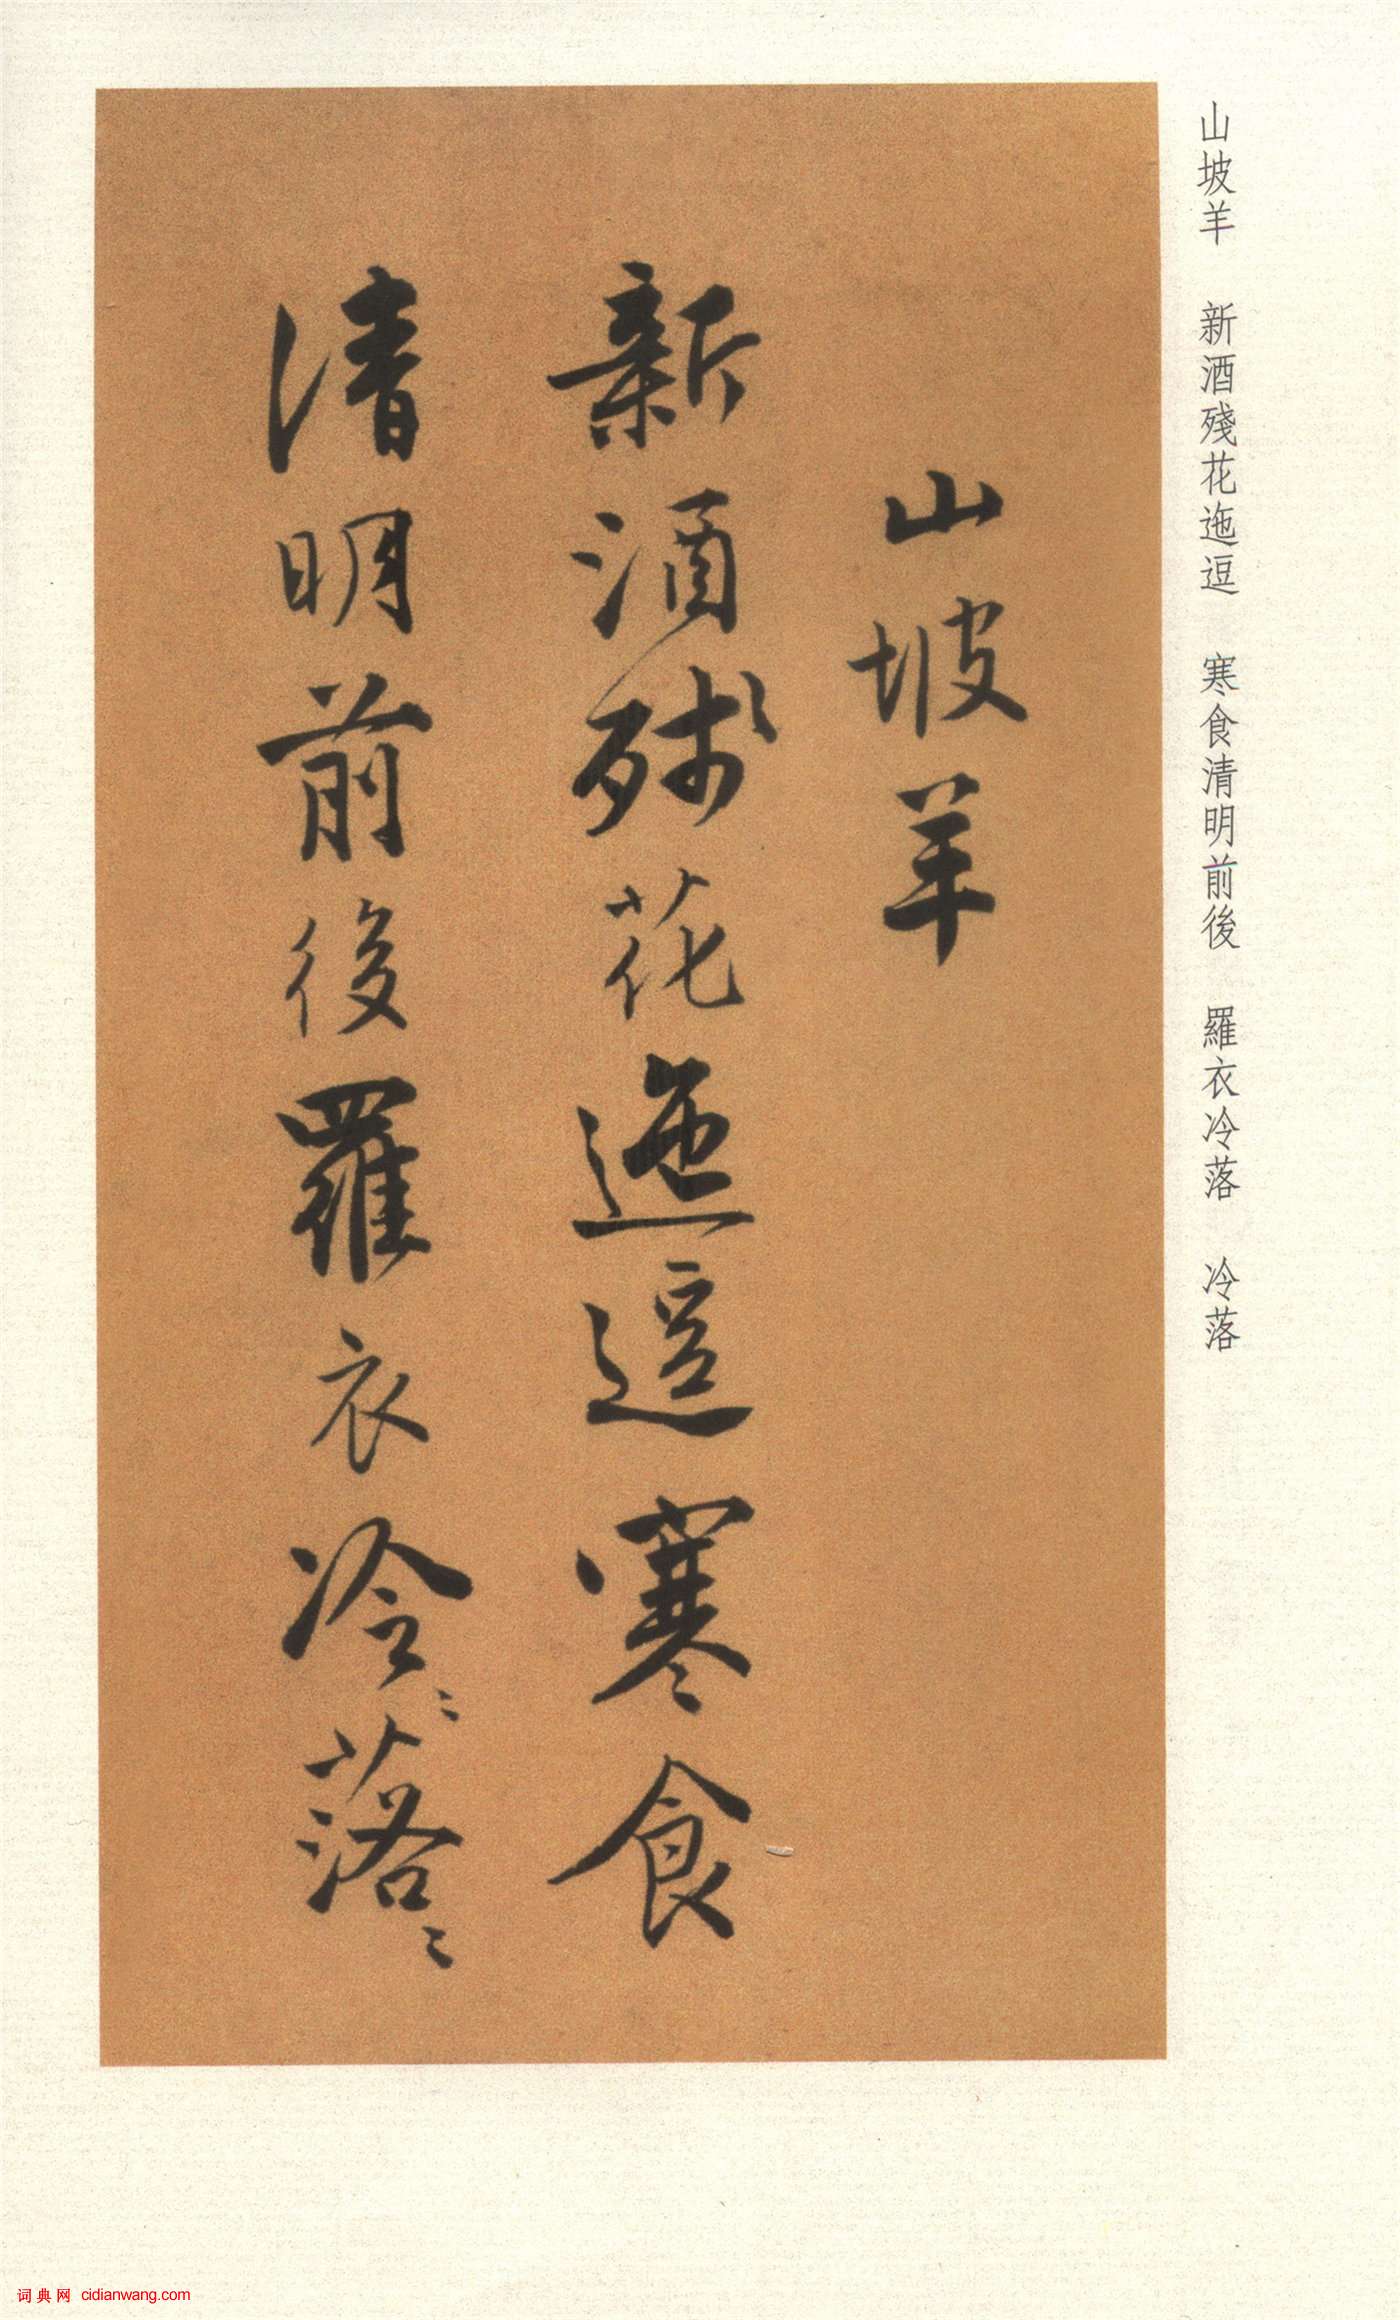 山坡羊　新酒殘花迤逗　寒食清明前後　羅衣冷落　冷落
山坡羊
新酒殘花迤逗寒食
清明前後羅衣冷〻落〻
词典网 cidianwang.com